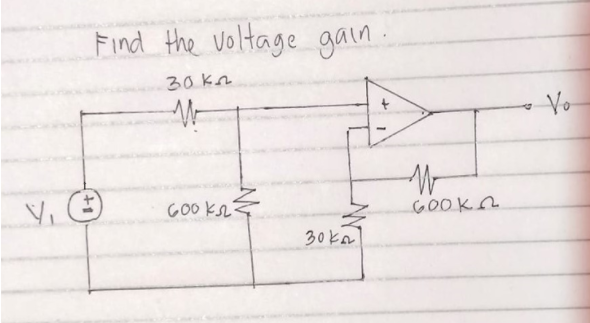 Find the voltage gain.
30 KΩ
+
-
Vo
V1
+
600 KΩ
600 KΩ
30 KΩ